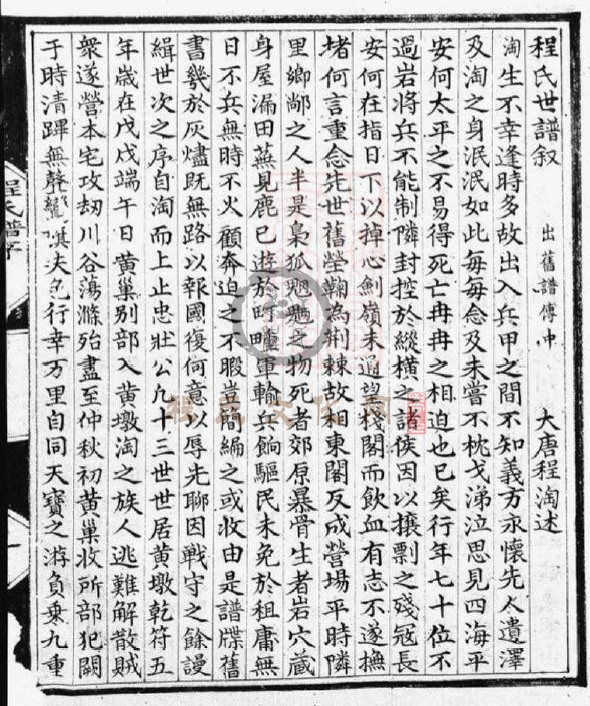 程氏世譜叙　出舊譜傳中　大唐程淘述
淘生不幸逢時多故出入兵甲之間不知義方永懷先人遺澤
及淘之身泯泯如此每每念及未嘗不枕戈涕泣思見四海平
安何太平之不易得死亡冉冉之相迫也已矣行年七十位不
過岩將兵不能制隣封控於縱橫之諸侯因以攘剽之殘冦長
安何在指日下以掉心劍嶺未通望棧閣而飲血有志不遂撫
堵何言重念先世舊塋鞠為荆棘故相東閣反成營場平時隣
里鄉鄰之人半是梟狐魍魎之物死者郊原暴骨生者岩穴藏
身屋漏田蕪見鹿已遊於町疃軍輸兵餉驅民未免於租庸無
日不兵無時不火顧奔迫之不暇豈簡編之或收由是譜牒舊
書幾於灰燼既無路以報國復何意以辱先聊因戦守之餘謾
緝世次之序自淘而上止忠壯公九十三世世居黄墩乾符五
年歳在戊戍端午日黄巢别部入黄墩淘之族人逃難解散賊
衆遂營本宅攻刼川谷蕩滌殆盡至仲秋初黄巢收所部犯闕
于時清蹕無聲行幸万里自同天寶之游負乗九重
程氏譜序